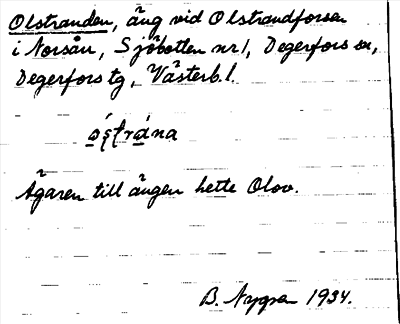 Olstranden, äng vid Olstrandforsen
i Norsån, Sjöbotten nr 1, Degerfors sn,
Degerfors tg, Västerb. l.
Ägaren till ängen hette Olov.
B. Nygren 1934.